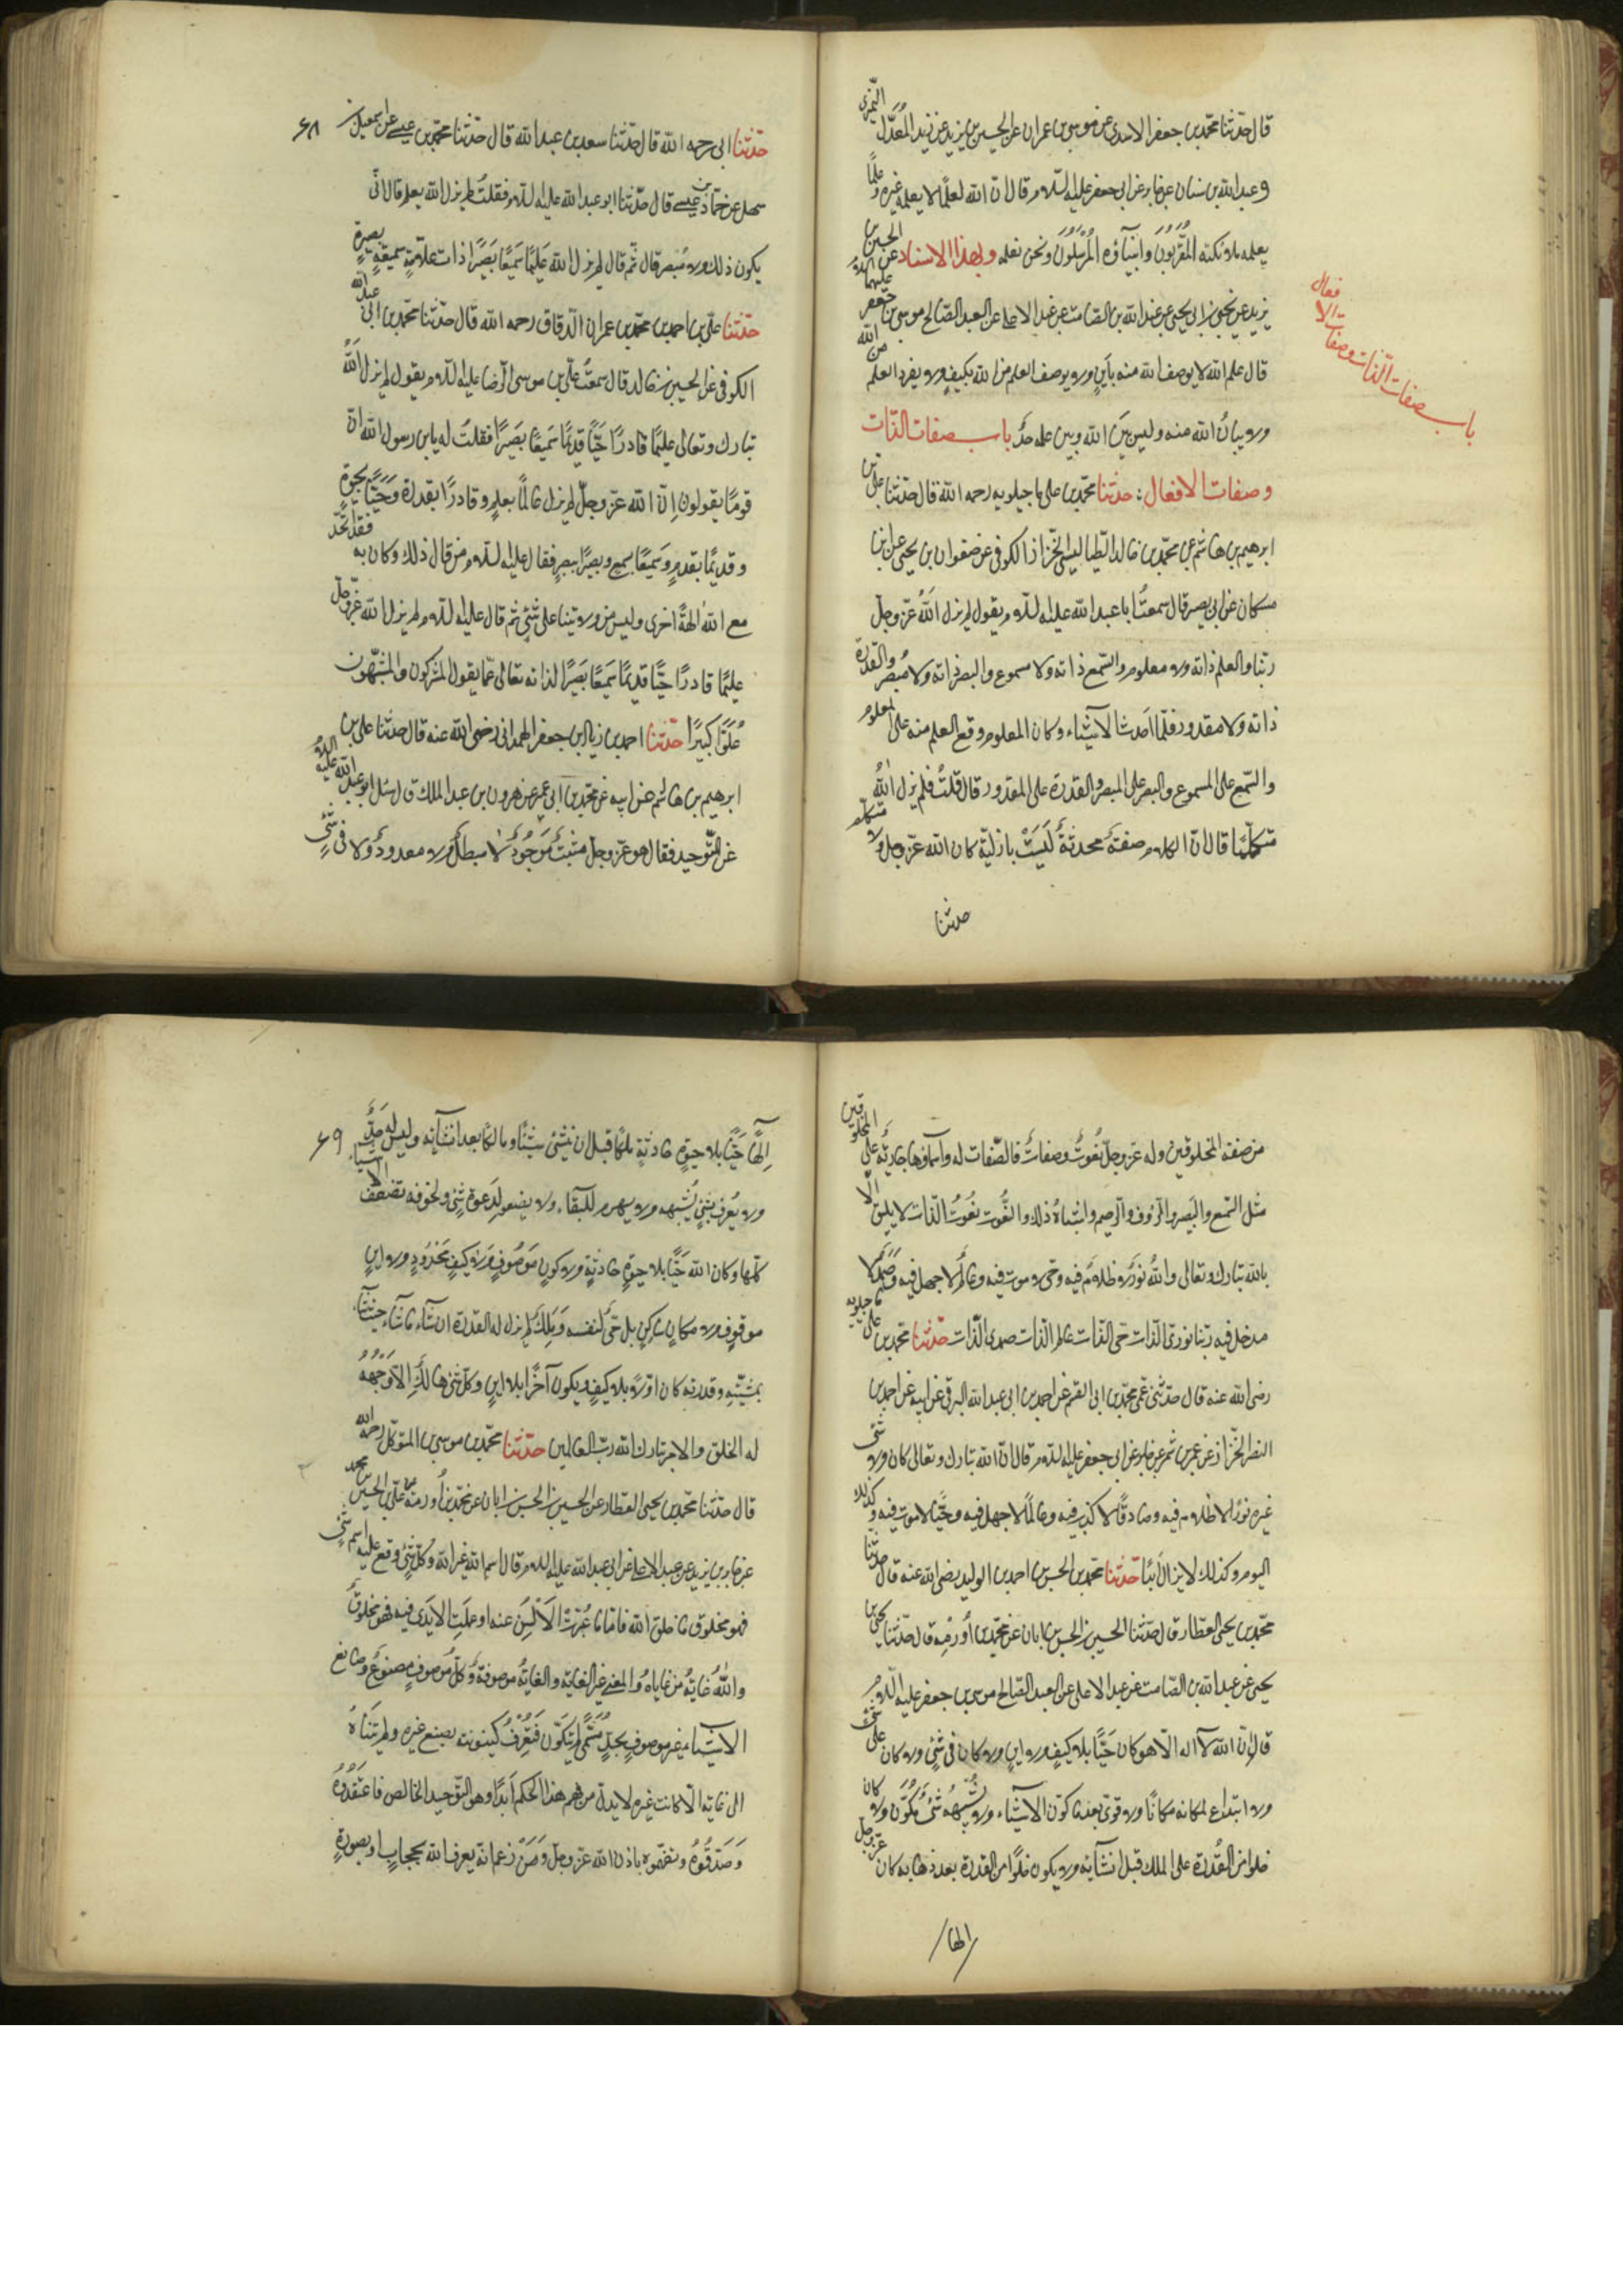 قال حدثنا محمد بن جعفر الاسدى عن موسى بن عمران عن الحسين بن يزيد عن زيد المُعَدَّل النميرى
و عبد الله بن سنان عن جابر عن ابى جعفر عليه السلام قال ان الله لعلمًا لا يعلمه غيره و علمًا
يعلمه ملائكته المُقَرَّبُونَ وانبيآؤه المُرْسَلُونَ ونحن نعلمه وبهذا الاسناد عن الحسين بن
يزيد عن يحيى بن ابى يحيى عن عبد الله بن الصامت عن عبد الاعلى عن العبد الصالح موسى بن جعفر عليهما السلام
قال علم الله لا يوصف الله منه باَينٍ ولا يوصف العلم من الله بكيفٍ ولا يفرد العلم من الله
ولا يبانُ الله منه وليس بين الله وبين علمه حدٌّ باب صفات الذات
وصفات الافعال : حدثنا محمد بن على ماجيلويه رحمه الله قال حدثنا على بن
ابرهيم بن هاشم عن محمد بن خالد الطيالسى الخزاز الكوفى عن صفوان بن يحيى عن ابن
مسكان عن ابى بصير قال سمعتُ ابا عبد الله عليه السلام يقول لم يزل اللهُ عز وجل
ربنا والعلم ذاته ولا معلوم والسّمع ذاته ولا مسموع والبصر ذاته ولا مُبصر والقدرة
ذاته ولا مقدور فلمّا اَحدث الاشيآء وكان المعلوم وقع العلم منه على المعلوم
والسّمع على المسموع والبصر على المبصر والقدرة على المقدور قال قلتُ فلم يزل اللهُ
متكلمًا قال ان الكلام صفةٌ محدثةٌ لَيسَتْ بازليّة كان الله عزّ وجل ولا متكلم
حدثنا
باب صفات الذات وصفات الافعال
۶۸
حدثنا ابى رحمه الله قال حدثنا سعد بن عبد الله قال حدثنا محمد بن عيسى عن اسمعيل بن
سهل عن حماد بن عيسى قال حدثنا ابو عبد الله عليه السلام فقلتُ لم يزل الله يعلم قال انّى
يكون ذلك ولا مُبصر قال ثم قال لم يزل الله عَليمًا سَميعًا بَصيرًا ذات علّامةٍ سميعةٍ بصيرةٍ
حدثنا على بن احمد بن محمد بن عمران الدقاق رحمه الله قال حدثنا محمد بن ابى عبد الله
الكوفى عن الحسين بن خالد قال سمعتُ على بن موسى الرضا عليه السلام يقول لم يزل اللهُ
تبارك وتعالى عليمًا قادرًا حيًّا قديمًا سَميعًا بَصيرًا فقلتُ له يابن رسول الله ان
قومًا يقولون اِنّ الله عزّ وجلّ لم يزل عالمًا بعلمٍ وقادرًا بقدرة وَحَيًّا بحيوةٍ
وقديمًا بقدمٍ وَسَميعًا بسمعٍ وبصيرًا ببصرٍ فقال عليه السلام من قال ذلك وكان به فقد اتّخذ
مع الله الهةً اخرى وليس من ولايتنا على شئٍ ثم قال عليه السلام لم يزل الله عزّوجلّ
عليمًا قادرًا حيًّا قديمًا سَميعًا بَصيرًا لذاته تعالى عمّا يقول المشركون والمشبّهون
عُلوًّا كبيرًا حدثنا احمد بن زياد بن جعفر الهمدانى رضى الله عنه قال حدثنا على بن
ابرهيم بن هاشم عن ابيه عن محمد بن ابى عمير عن هرون بن عبد الملك قال سئل ابو عبد الله عليه السلام
عن التّوحيد فقال هو عزّ وجلّ مثبتٌ مَوجُودٌ لا مبطلٌ ولا معدودٌ ولا فى شئٍ
من صفة المخلوقين وله عزّ وجلّ نُعُوتٌ وصفاتٌ فالصّفات له واسمآؤها جاريةٌ على المخلوقين
مثل السّمع والبَصير والرّؤف والرّحيم واشباهُ ذلك والنُّعوت نُعُوتُ الذّات لا يليق الّا
بالله تبارك وتعالى واللهُ نورٌ لا ظلام فيه وحىٌّ لا موت فيه وعالمٌ لا جهل فيه وصَمَدٌ لا
مدخل فيه ربّنا نورىّ الذّات حىّ الذّات عالم الذّات صمدىّ الذّات حدّثنا محمد بن على ماجيلويه
رضى الله عنه قال حدّثنى عمّى محمد بن ابى القسم عن احمد بن ابى عبد الله البرقى عن ابيه عن احمد بن
النضر الخزّاز عن عمرو بن شمر عن جابر عن ابى جعفر عليه السلام قال انّ الله تبارك وتعالى كان ولا شئ
غيره نورًا لا ظلام فيه وصادقًا لا كذب فيه وعالمًا لا جهل فيه وحَيًّا لا موت فيه وكذلك
اليوم وكذلك لا يزال اَبدًا حدّثنا محمد بن الحسن بن احمد بن الوليد رضى الله عنه قال حدثنا
محمّد بن يحيى العطّار قال حدّثنا الحسين بن الحسن بن ابان عن محمد بن اُورمة قال حدّثنا يحيى بن
يحيى عن عبد الله بن الصّامت عن عبد الاعلى عن العبد الصّالح موسى بن جعفر عليه السّلام
قال اِنّ الله لآ اله الّا هو كان حَيًّا بلا كيفٍ ولا اين ولا كان فى شئٍ ولا كان على شئ
ولا ابتدع لمكانه مكانًا ولا قوى بعد ما كوّن الاشيآء ولا يُشبِهُهُ شئٌ مُكَوَّن ولا كان
خلوا من القُدرة على الملك قبل انشآئه ولا يكون خلوًا من القدرة بعد ذهابه كان عزّ وجلّ
الها
۶۹
اِلٰهًا حَيًّا بلا حيوةٍ حادثةٍ ملكًا قبل ان ينشئ شيئًا ومالكًا بعد انشآئه وليس لله حَدٌّ
ولا يُعرف بشئٍ يُشبهه ولا يهرم للبقآء ولا يصعق لِدَعوة شئٍ ولخوفه تصعق الاشيآء
كلّها وكان الله حَيًّا بلا حيوةٍ حادثةٍ ولا كونٍ مَوصُوفٍ وَلا كيفٍ مَحْدُودٍ ولا اينٍ
موقوفٍ ولا مكانٍ ساكنٍ بل حىٌّ لنفسه وَمَلِكٌ لم يزل له القدرة انشآء ماشآء حينشآء
بمشيّتهِ وقدرته كان اوّلاً بلا كيفٍ ويكون آخرًا بلا اينٍ وكلّ شئ هالكٌ اِلّا وَجْهَهُ
له الخلق والامر تبارك الله ربّ العالمين حدّثنا محمّد بن موسى بن المتوكّل رحمه الله
قال حدّثنا محمّد بن يحيى العطّار عن الحسين بن الحسن بن ابان عن محمّد بن اُورمة عن علىّ بن الحسين بن محمد
عن خالد بن يزيد عن عبد الاعلى عن ابى عبد الله عليه السلام قال اسم الله غير الله وكلّ شئ وقع عليه اسم شئٍ
فهو مخلوق ما خلا الله فامّا ما عُبّرتِ الاَلْسُن عنه او عملَتِ الايدى فيه فهو مخلوقٌ
واللهُ غايةٌ من غاياهُ والمعنى غير الغاية والغايةُ موصوفةٌ وكلّ مَوصوفٍ مصنوعٌ وصانع
الاشيآء غير موصوفٍ بحدٍّ مُسَمًّى لم يتكوّن فَتُعْرَفَ كينونته بصنع غيره ولم يتناهَ
الى غاية الّا كانت غيره لا يذلّ من فهم هذا الحكم اَبدًا وهو التّوحيد الخالص فاعتَقِدُوهُ
وَصَدّقُوهُ وتفهّموه باذن الله عزّ وجلّ وَمَنْ زعم انّه يعرف الله بحجابٍ او بصورةٍ